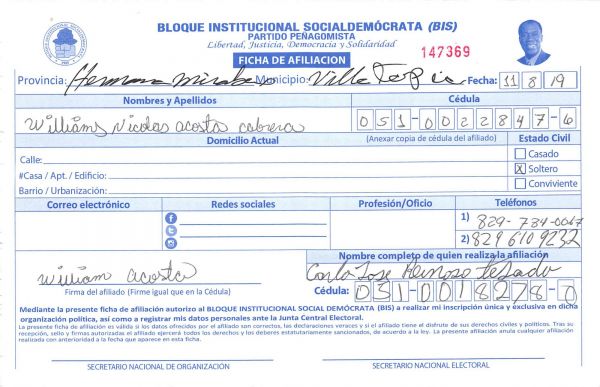 BLOQUE INSTITUCIONAL SOCIALDEMÓCRATA (BIS)
PARTIDO PEÑAGOMISTA
Libertad, Justicia, Democracia y Solidaridad
FICHA DE AFILIACION
147369
Provincia: Hermana Mirabal Municipio: Villa Tapia Fecha: 11 8 19
Nombres y Apellidos Cédula
Williams Nicolas acosta cabrera 051-0022847-6
Domicilio Actual (Anexar copia de cédula del afiliado) Estado Civil
Calle: Casado
#Casa / Apt. / Edificio: X Soltero
Barrio / Urbanización: Conviviente
Correo electrónico Redes sociales Profesión/Oficio Teléfonos
1) 829-734-0067
2) 829 610 9232
Nombre completo de quien realiza la afiliación
william acosta Carlo Jose Reinoso
Firma del afiliado (Firme igual que en la Cédula) Cédula: 051-0018278-0
Mediante la presente ficha de afiliación autorizo al BLOQUE INSTITUCIONAL SOCIAL DEMÓCRATA (BIS) a realizar mi inscripción única y exclusiva en dicha
organización política, así como a registrar mis datos personales ante la Junta Central Electoral.
La presente ficha de afiliación es válida si los datos ofrecidos por el afiliado son correctos, las declaraciones veraces y si el afiliado tiene el disfrute de sus derechos civiles y políticos. Tras su
recepción, sello y firmas autorizadas el afiliado ejercerá todos los derechos y los deberes estatutariamente sancionados, de acuerdo a la ley. La presente afiliación anula cualquier afiliación
realizada con anterioridad a la fecha que aparece en esta ficha.
SECRETARIO NACIONAL DE ORGANIZACIÓN SECRETARIO NACIONAL ELECTORAL